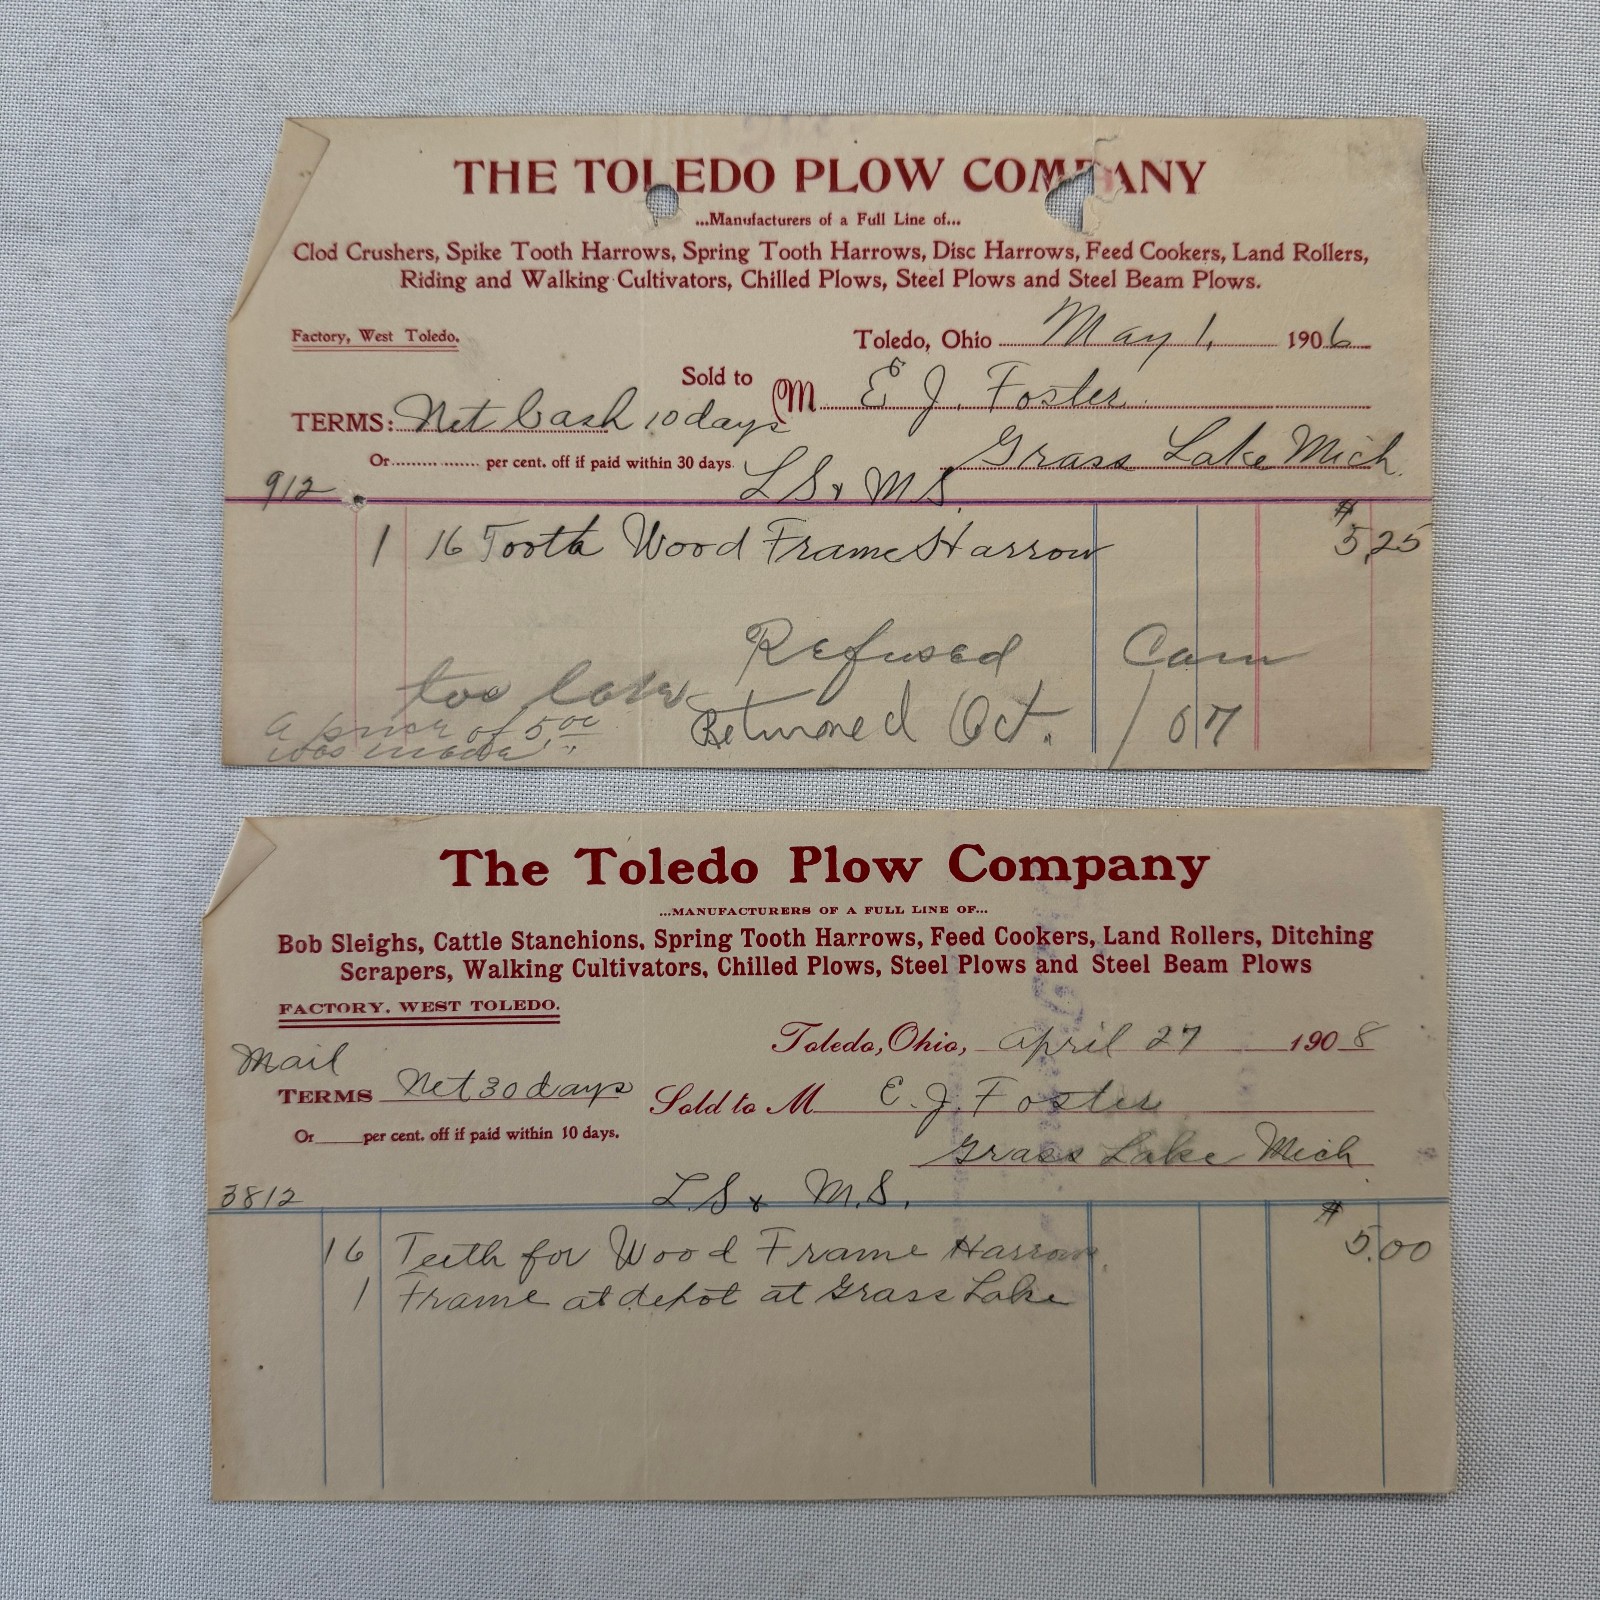 THE TOLEDO PLOW COMPANY
...Manufacturers of a Full Line of...
Clod Crushers, Spike Tooth Harrows, Spring Tooth Harrows, Disc Harrows, Feed Cookers, Land Rollers,
Riding and Walking Cultivators, Chilled Plows, Steel Plows and Steel Beam Plows.
Factory, West Toledo.
Toledo, Ohio May 1, 1906
Sold to M E J. Foster
TERMS: Net Cash 10 days
Grass Lake Mich.
Or.................. per cent. off if paid within 30 days.
L S & M S.
912
$
1 16 Tooth Wood Frame Harrow 5,25
Refused
too late
Returned Oct. 1 07
a price of 5 00
was made
The Toledo Plow Company
...MANUFACTURERS OF A FULL LINE OF...
Bob Sleighs, Cattle Stanchions, Spring Tooth Harrows, Feed Cookers, Land Rollers, Ditching
Scrapers, Walking Cultivators, Chilled Plows, Steel Plows and Steel Beam Plows
FACTORY, WEST TOLEDO.
Toledo, Ohio, April 27 1908
Mail
TERMS Net 30 days
Sold to M E. J. Foster
Or____per cent. off if paid within 10 days.
Grass Lake Mich
L.S & M.S.
3812
$
16 Teeth for Wood Frame Harrow. 5.00
1 Frame at depot at Grass Lake